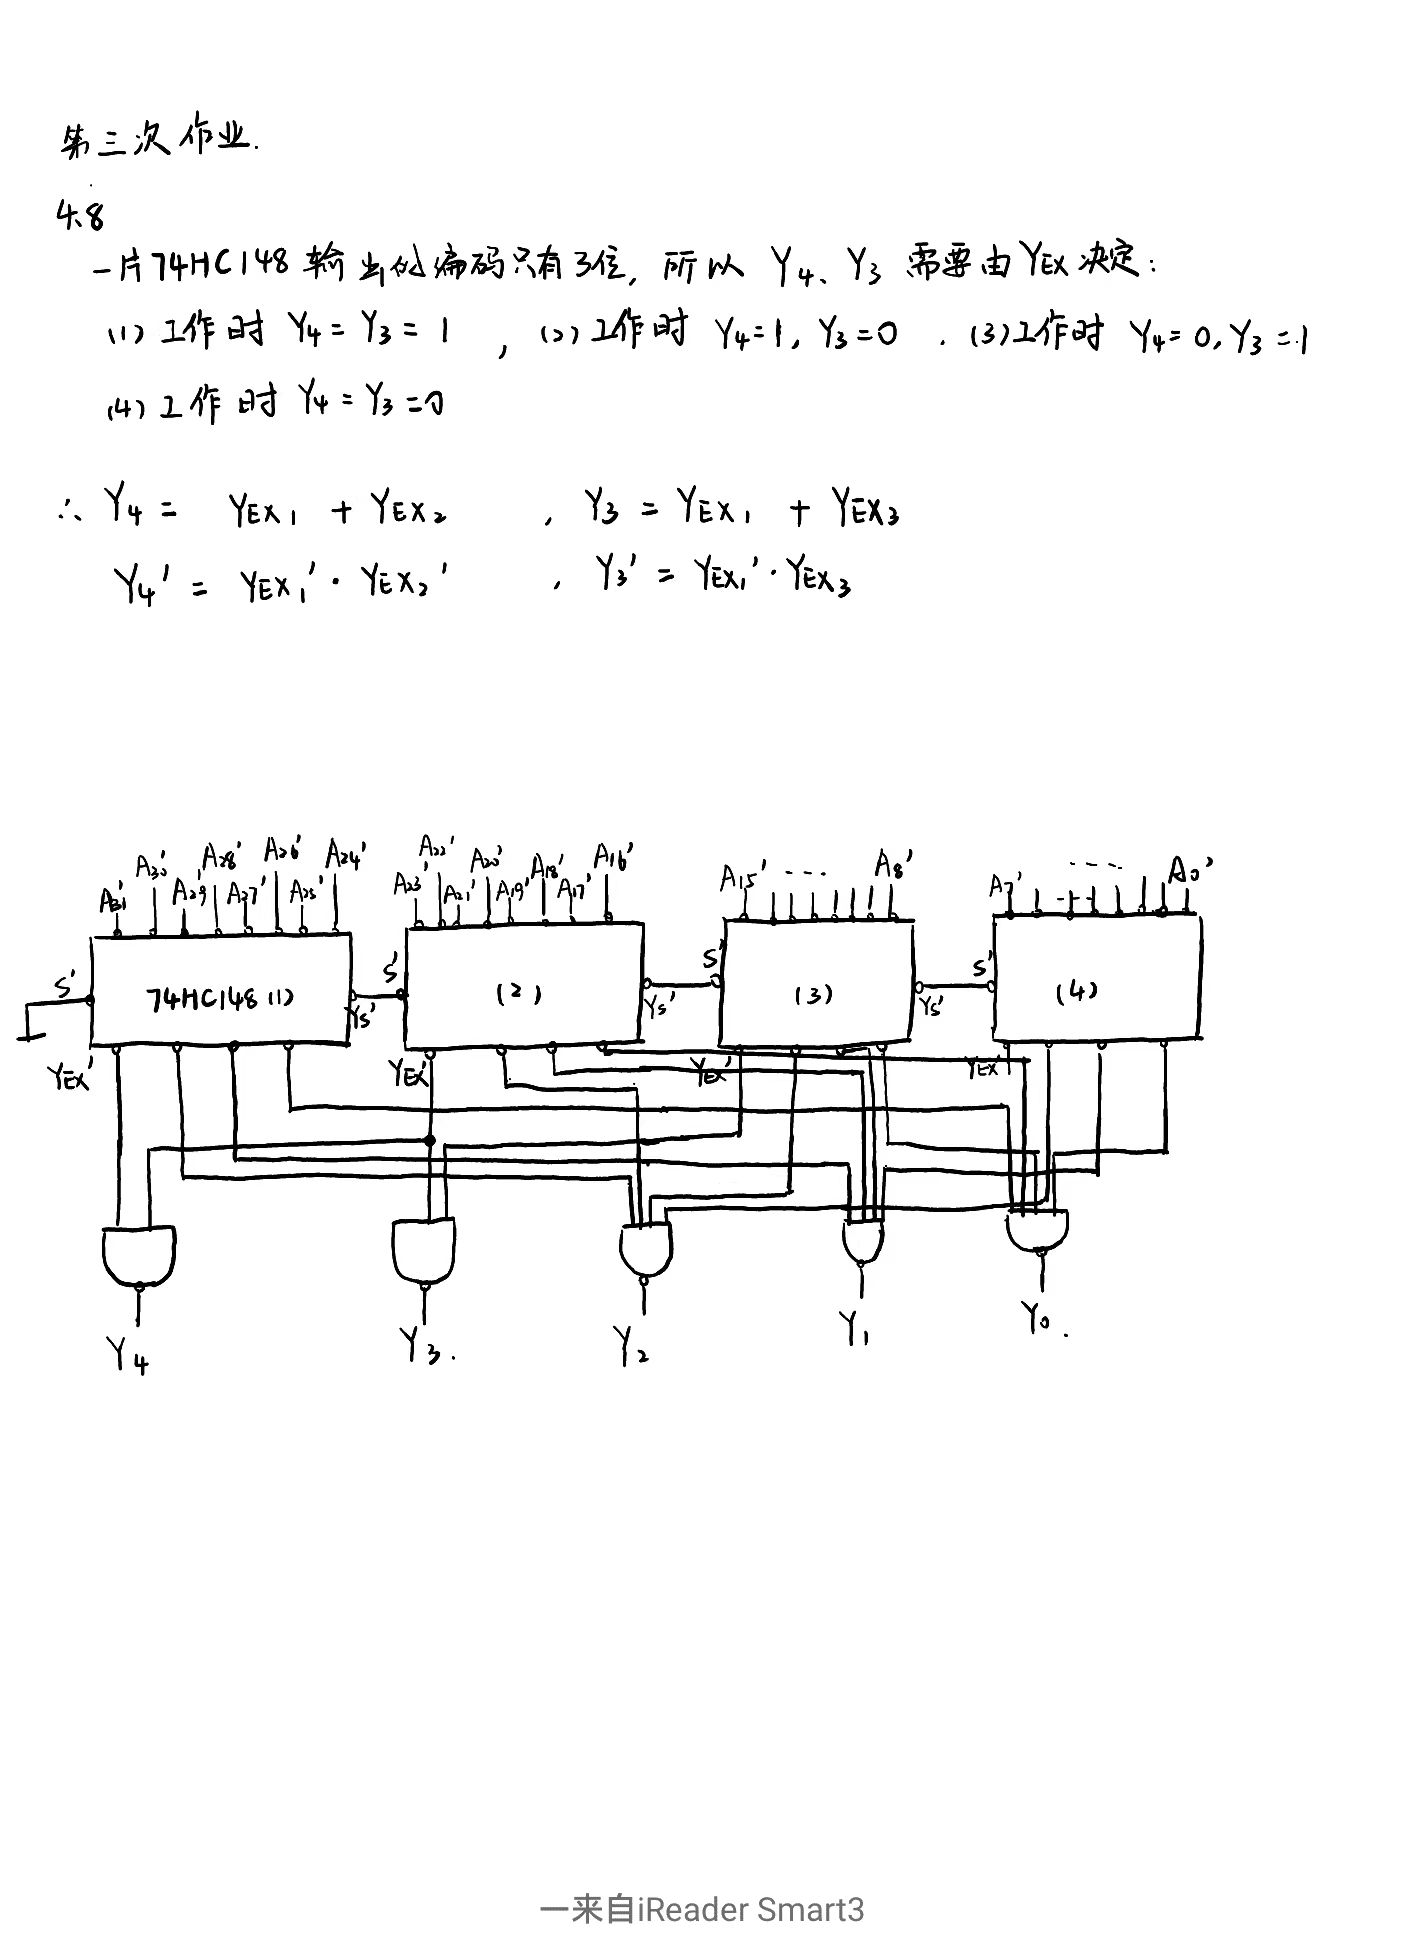 第三次作业.
4.8
一片74HC148输出的编码只有3位, 所以 Y4、Y3 需要由YEX决定:
(1) 工作时 Y4 = Y3 = 1 , (2) 工作时 Y4=1, Y3=0 . (3)工作时 Y4=0, Y3=1
(4) 工作时 Y4 = Y3 =0
∴ Y4 = YEX1 + YEX2 , Y3 = YEX1 + YEX3
Y4' = YEX1' · YEX2' , Y3' = YEX1' · YEX3
A31' A30' A29' A28' A27' A26' A25' A24' A23' A22' A21' A20' A19' A18' A17' A16' A15' --- A8' A7' --- A0'
S' 74HC148 (1) YS' S' (2) YS' S' (3) YS' S' (4)
YEX' YEX' YEX' YEX'
Y4 Y3. Y2 Y1 Y0.
一来自iReader Smart3